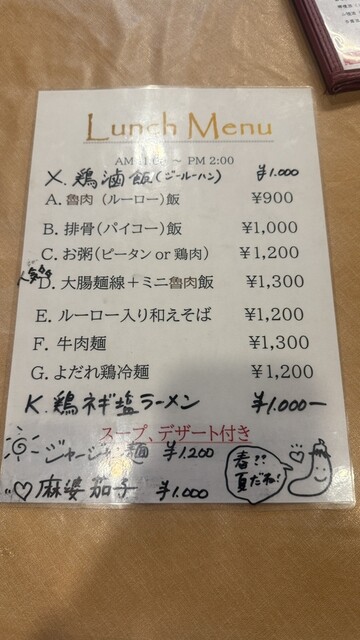 Lunch Menu
AM 11:00 ～ PM 2:00
X. 鶏滷飯(ジールーハン) ¥1.000
A. 魯肉（ルーロー）飯 ¥900
B. 排骨（パイコー）飯 ¥1,000
C. お粥（ピータン or 鶏肉） ¥1,200
D. 大腸麺線＋ミニ魯肉飯 ¥1,300
E. ルーロー入り和えそば ¥1,200
F. 牛肉麺 ¥1,300
G. よだれ鶏冷麺 ¥1,200
K. 鶏ネギ塩ラーメン ¥1.000ー
スープ、デザート付き
ジャージャン麺 ¥1.200
麻婆茄子 ¥1.000
春??
夏だね!